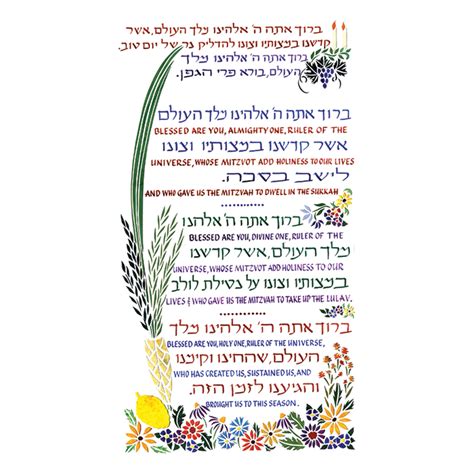 ברוך אתה ה' אלהינו מלך העולם, אשר
קדשנו במצותיו וצונו להדליק נר של יום טוב.
ברוך אתה ה' אלהינו מלך
העולם, בורא פרי הגפן.
ברוך אתה ה' אלהינו מלך העולם
BLESSED ARE YOU, ALMIGHTY ONE, RULER OF THE
אשר קדשנו במצותיו וצונו
UNIVERSE, WHOSE MITZVOT ADD HOLINESS TO OUR LIVES
לישב בסכה.
AND WHO GAVE US THE MITZVAH TO DWELL IN THE SUKKAH
ברוך אתה ה' אלהינו
BLESSED ARE YOU, DIVINE ONE, RULER OF THE
מלך העולם, אשר קדשנו
UNIVERSE, WHOSE MITZVOT ADD HOLINESS TO OUR
במצותיו וצונו על נטילת לולב
LIVES & WHO GAVE US THE MITZVAH TO TAKE UP THE LULAV.
ברוך אתה ה' אלהינו מלך
BLESSED ARE YOU, HOLY ONE, RULER OF THE UNIVERSE,
העולם, שהחינו וקימנו
WHO HAS CREATED US, SUSTAINED US, AND
והגיענו לזמן הזה.
BROUGHT US TO THIS SEASON.